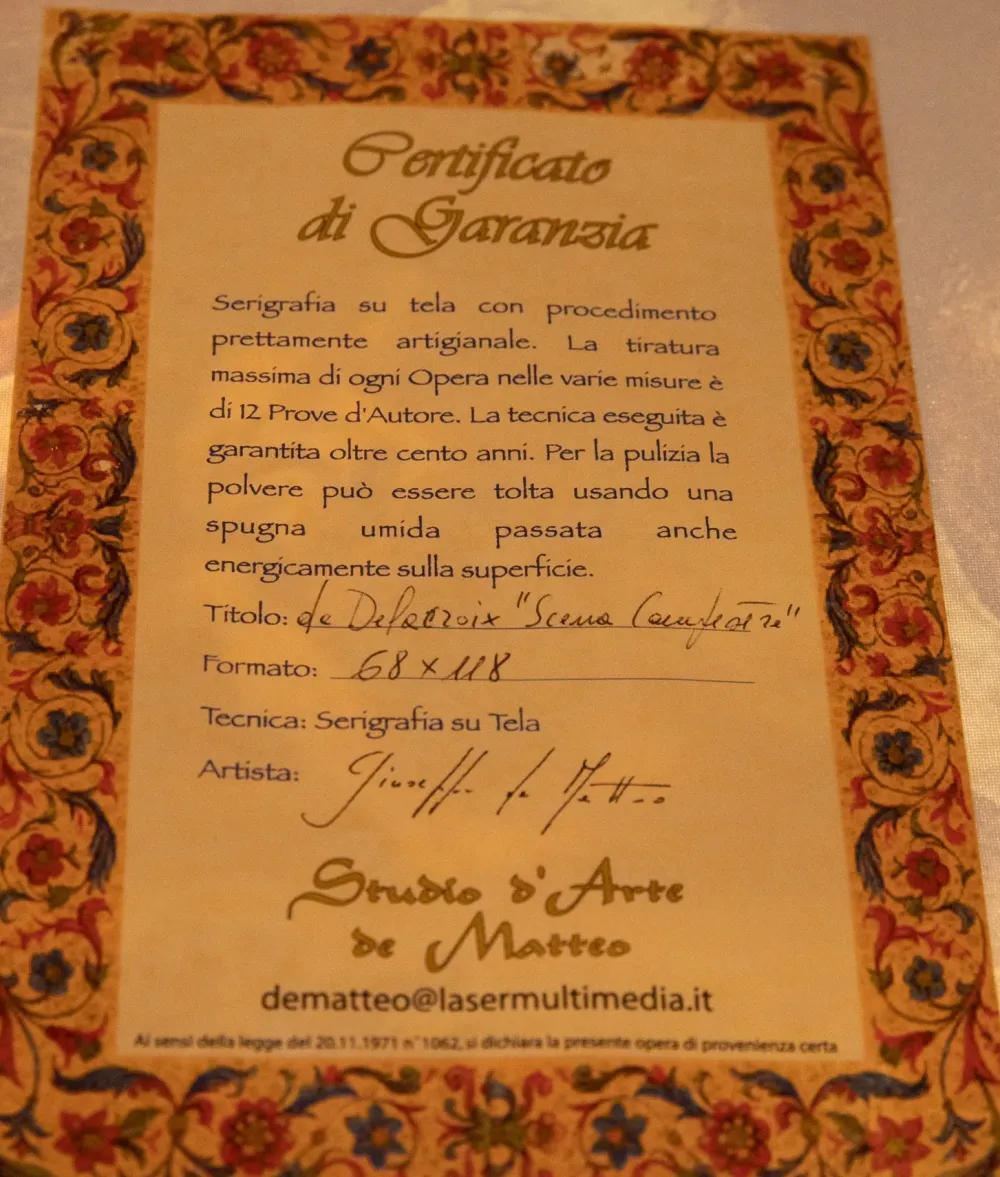 Certificato
di Garanzia
Serigrafia su tela con procedimento
prettamente artigianale. La tiratura
massima di ogni Opera nelle varie misure è
di 12 Prove d'Autore. La tecnica eseguita è
garantita oltre cento anni. Per la pulizia la
polvere può essere tolta usando una
spugna umida passata anche
energicamente sulla superficie.
Titolo: da Delacroix "Scena Campestre"
Formato: 68 x 118
Tecnica: Serigrafia su Tela
Artista: Giuseppe de Matteo
Studio d'Arte
de Matteo
dematteo@lasermultimedia.it
Ai sensi della legge del 20.11.1971 n° 1062, si dichiara la presente opera di provenienza certa